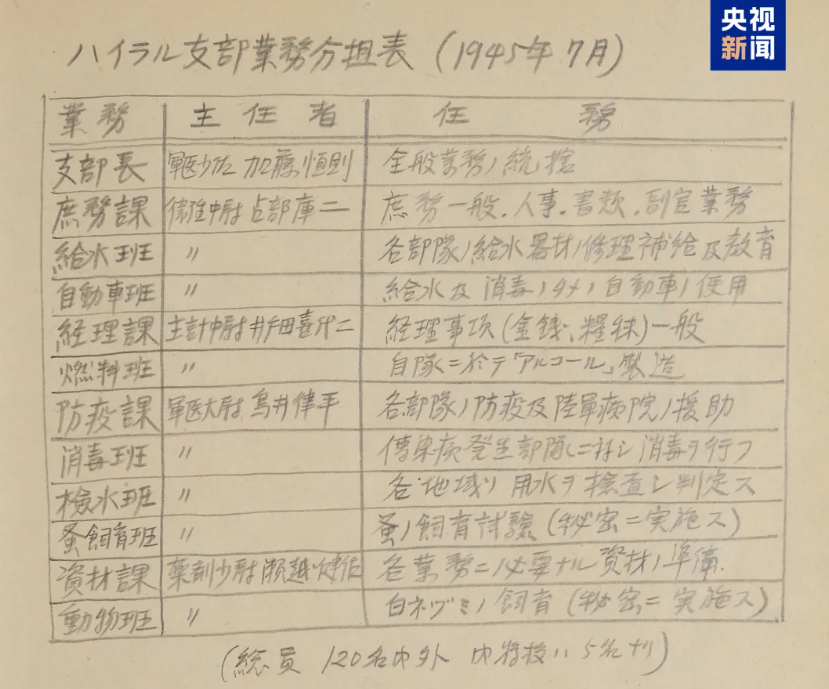 央视
新闻
ハイラル支部業務分担表（1945年7月）
業務 主任者 任務
支部長 軍医少佐 加藤恒則 全般業務ノ統括
庶務課 衛生中尉 占部庫二 庶務一般、人事、書類、副官業務
給水班 〃 各部隊ノ給水器材ノ修理補給及教育
自動車班 〃 給水及消毒ノタメノ自動車ノ使用
経理課 主計中尉 井田喜代二 経理事項（金銭、糧秣）一般
燃料班 〃 自隊ニ於テ「アルコール」製造
防疫課 軍医大尉 鳥井律平 各部隊ノ防疫及陸軍病院ノ援助
消毒班 〃 傳染病発生部隊ニ対シ消毒ヲ行フ
檢水班 〃 各地域ノ用水ヲ檢査シ判定ス
蚤飼育班 〃 蚤ノ飼育試験（秘密ニ実施ス）
資材課 薬剤少尉 瀬越健 各業務ニ必要ナル資材ノ準備.
動物班 〃 白ネヅミノ飼育（秘密ニ実施ス）
（総員 120名内外 内将校ハ5名ナリ）